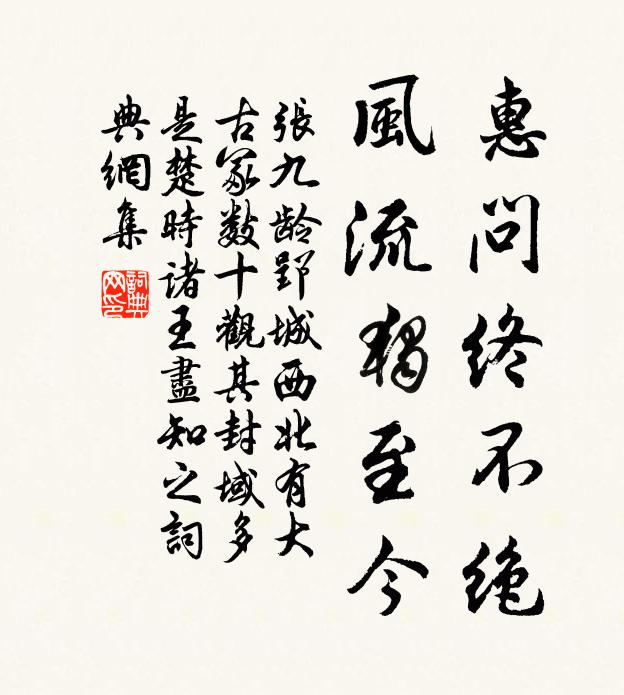 惠问终不绝
風流獨至今
張九龄郢城西北有大
古冢数十觀其封域多
是楚時诸王盡知之詞
典網集
詞典網印